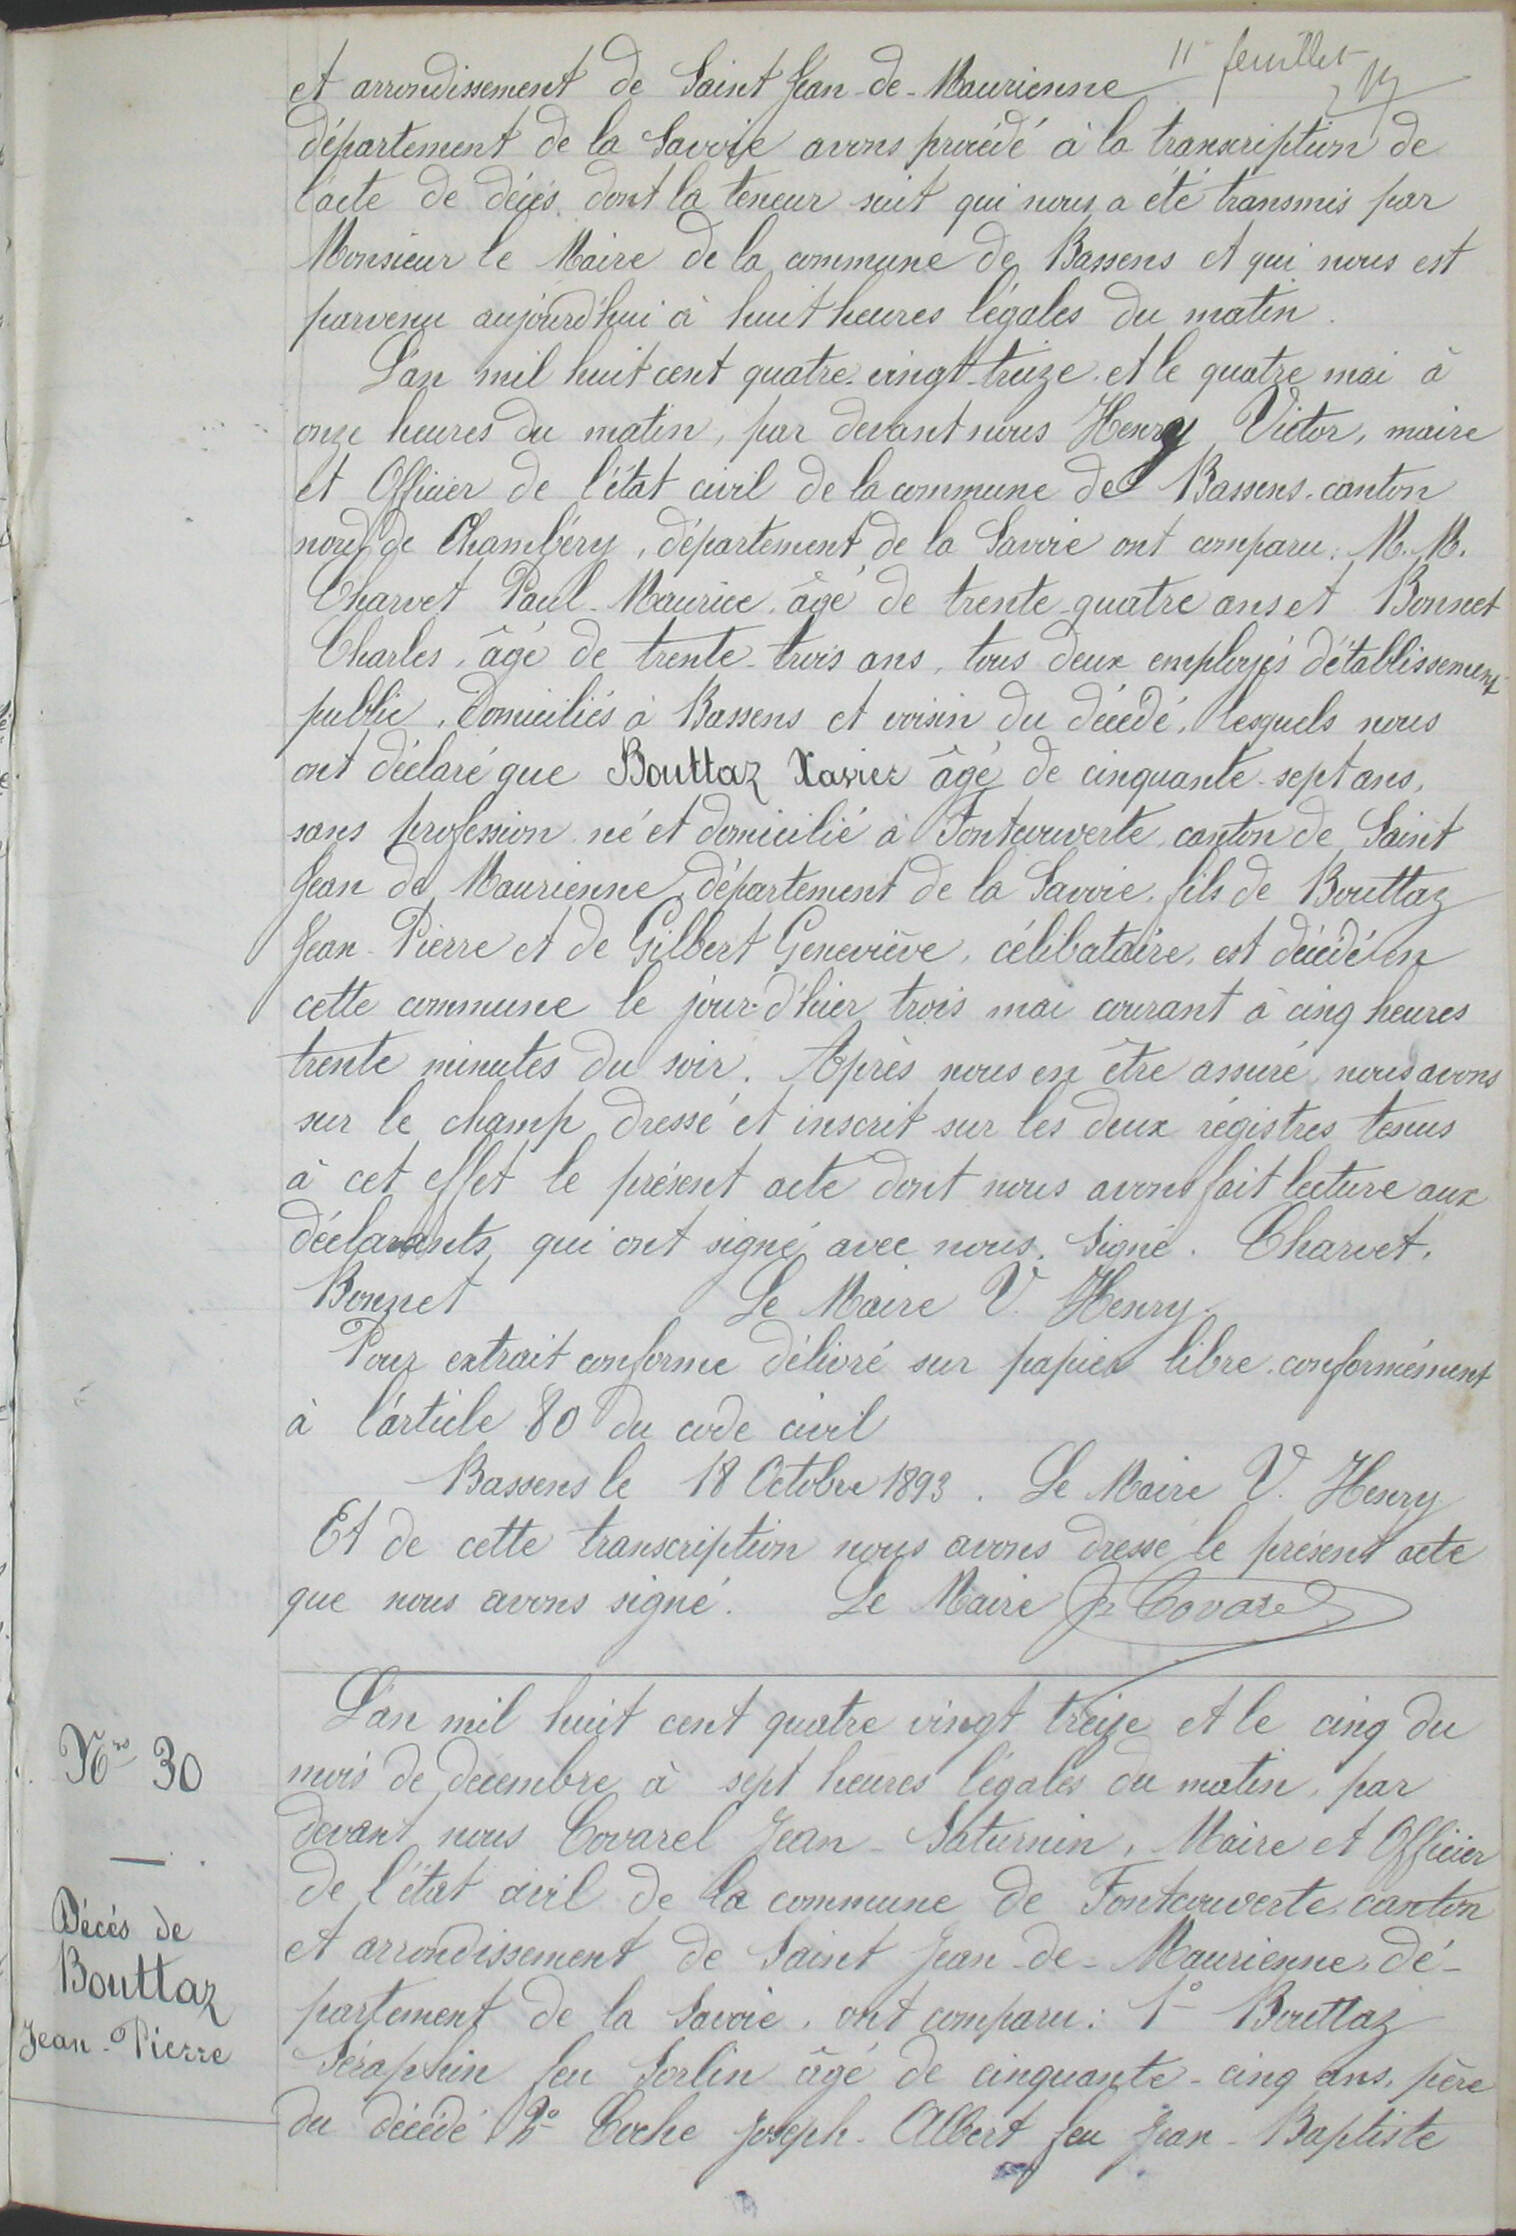 11e feuillet
et arrondissement de Saint Jean-de-Maurienne
département de la Savoie avons procédé à la transcription de
l'acte de décès dont la teneur suit qui nous a été transmis par
Monsieur le Maire de la commune de Bassens et qui nous est
parvenu aujourd'hui à huit heures légales du matin.
L'an mil huit cent quatre-vingt-treize et le quatre mai à
onze heures du matin, par devant nous Henry Victor, maire
et Officier de l'état civil de la commune de Bassens, canton
nord de Chambéry, département de la Savoie ont comparu: M.M.
Charvet Paul-Maurice, âgé de trente-quatre ans et Bonnet
Charles, âgé de trente-trois ans, tous deux employés d'établissement
public, domiciliés à Bassens et voisin du décédé, lesquels nous
ont déclaré que Bouttaz Xavier âgé de cinquante-sept ans,
sans profession né et domicilié à Fontcouverte, canton de Saint
Jean de Maurienne, département de la Savoie, fils de Bouttaz
Jean-Pierre et de Gilbert Geneviève, célibataire, est décédé en
cette commune le jour d'hier trois mai courant à cinq heures
trente minutes du soir. Après nous en être assuré, nous avons
sur le champ dressé et inscrit sur les deux régistres tenus
à cet effet le présent acte dont nous avons fait lecture aux
déclarants, qui ont signé avec nous. Signé. Charvet,
Bonnet Le Maire V. Henry
Pour extrait conforme délivré sur papier libre conformément
à l'article 80 du code civil
Bassens le 18 Octobre 1893. Le Maire V. Henry
Et de cette transcription nous avons dressé le présent acte
que nous avons signé. Le Maire Covarel
Nos 30
Décés de
Bouttaz
Jean-Pierre
L'an mil huit cent quatre vingt treize et le cinq du
mois de décembre à sept heures légales du matin, par
devant nous Covarel Jean-Saturnin, Maire et Officier
de l'état civil de la commune de Fontcouverte, canton
et arrondissement de Saint Jean-de-Maurienne, dé-
partement de la Savoie, ont comparu: 1° Bouttaz
Séraphin feu Sorlin âgé de cinquante-cinq ans, père
du décédé 2° Coche Joseph-Albert feu Jean-Baptiste